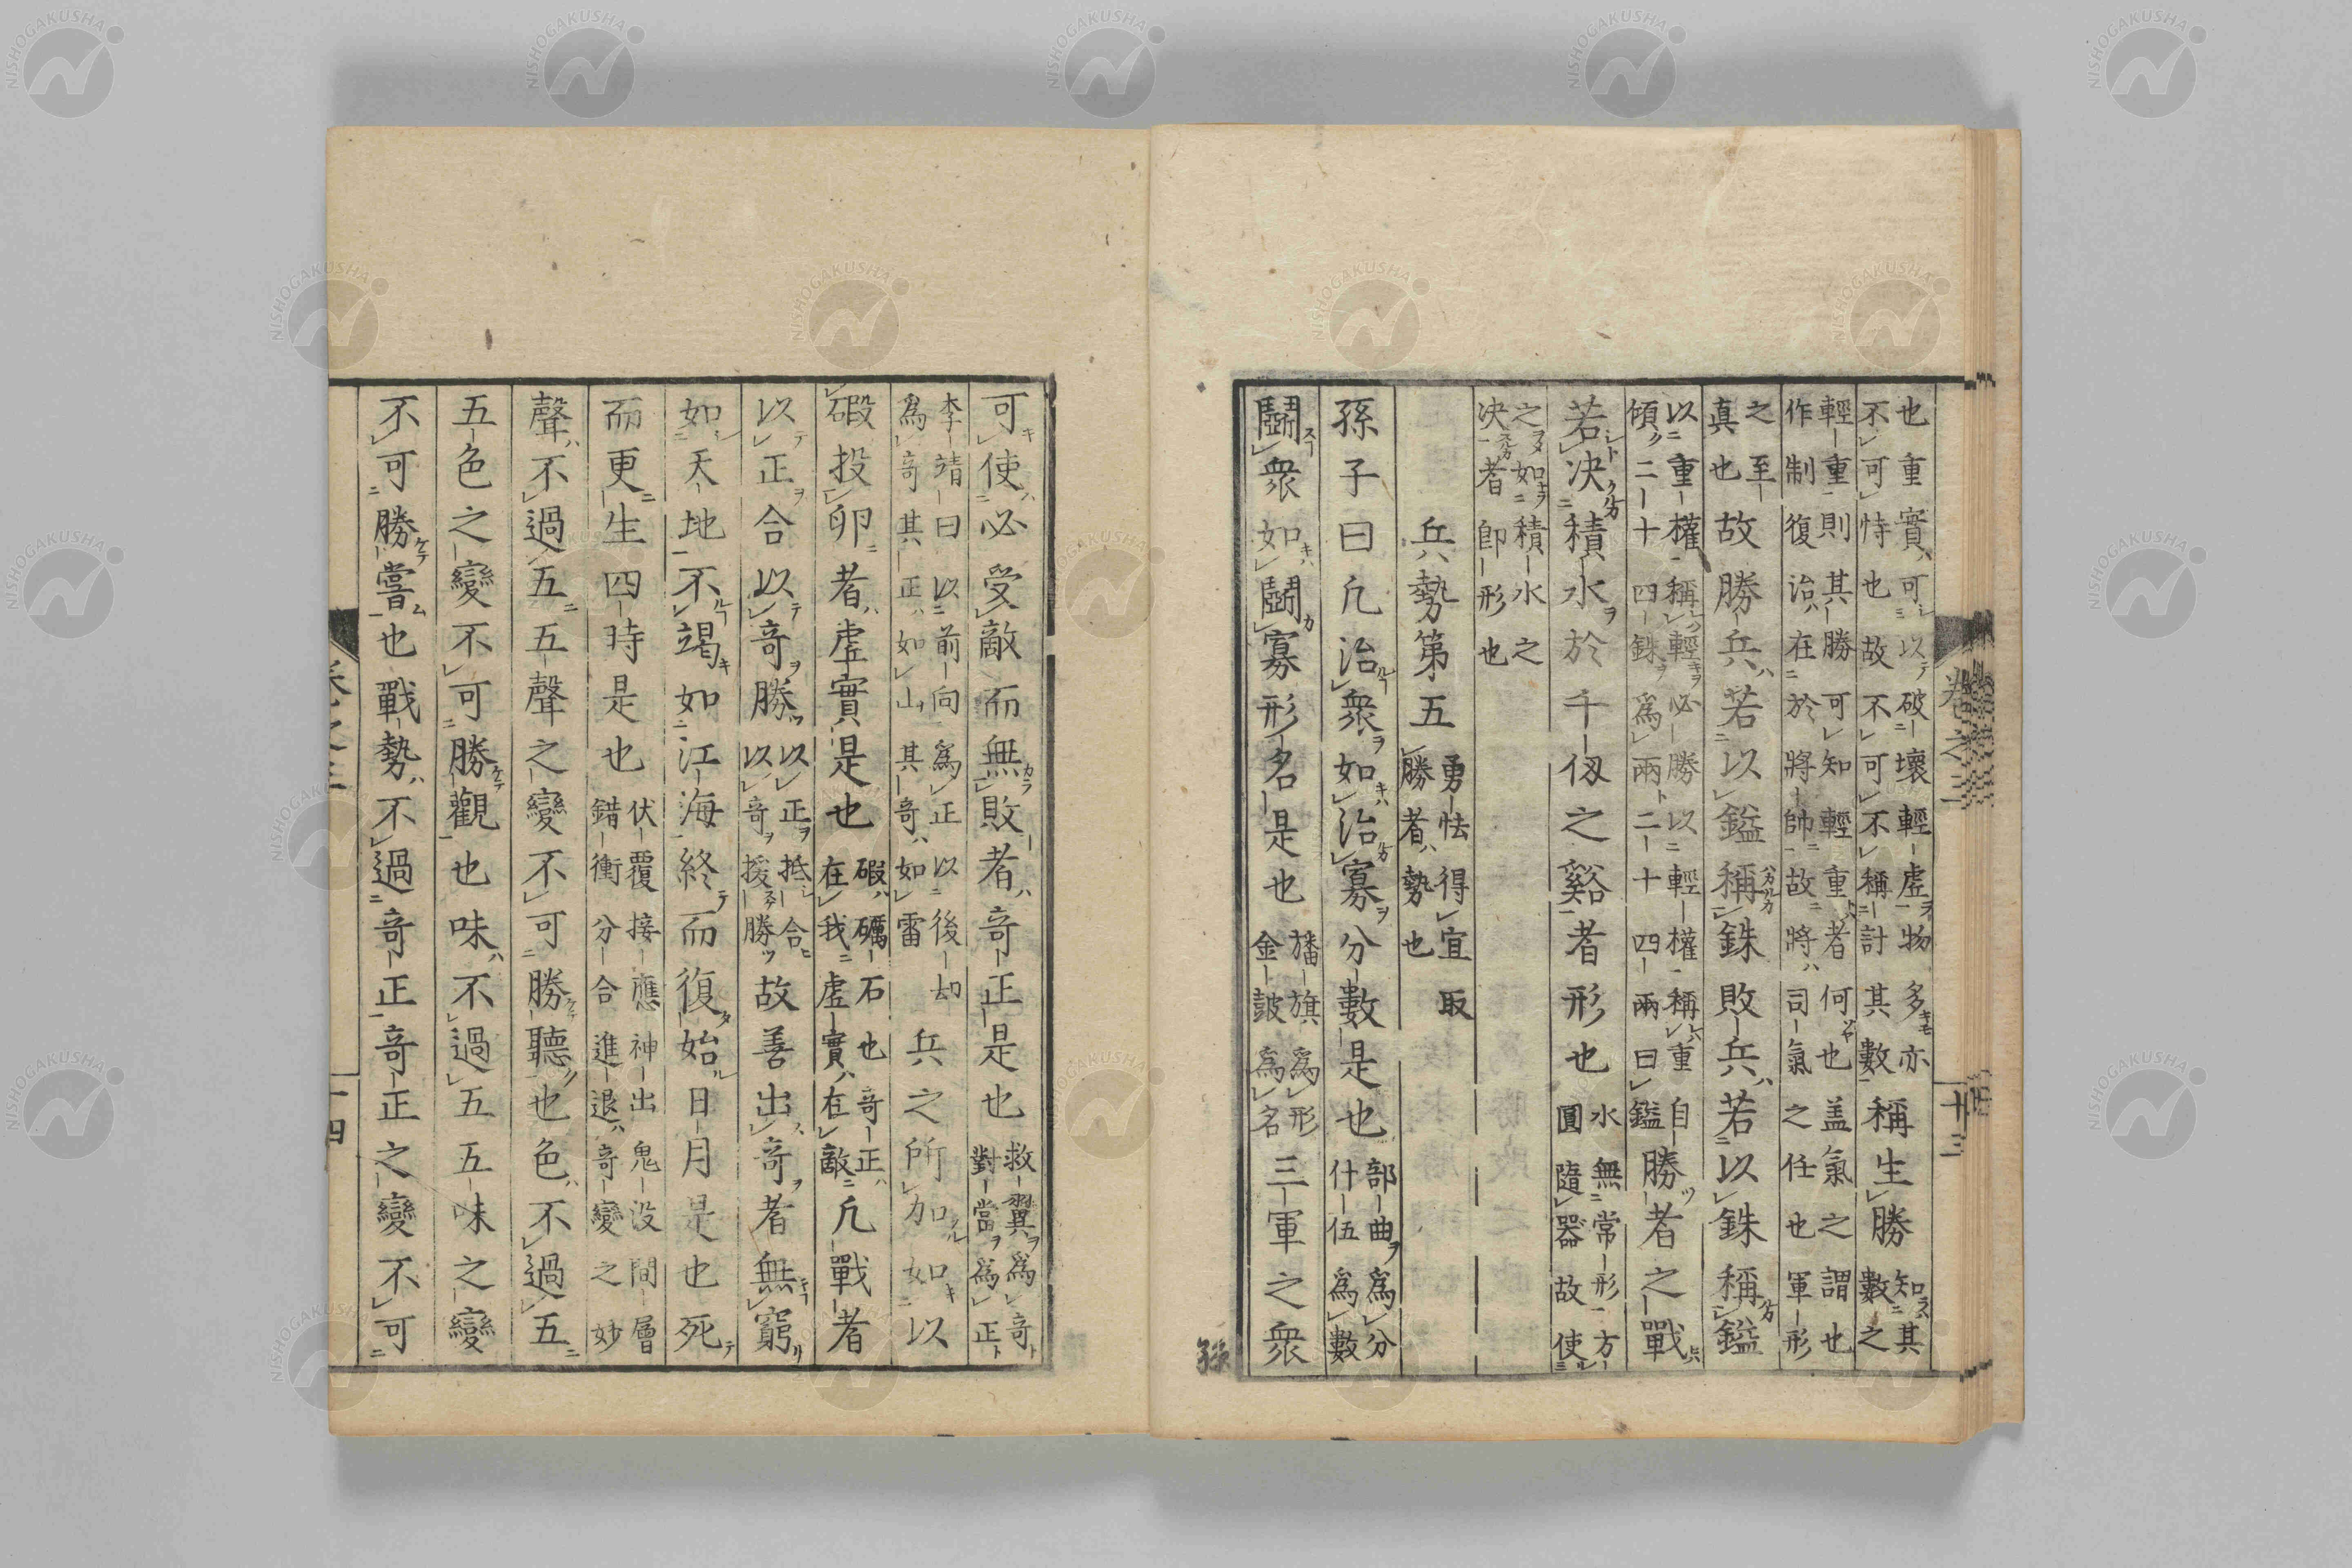 也重實可以破壞輕虛物多亦
不可恃也故不可不稱計其數稱生勝知其
數之
輕重則其勝可知輕重者何也盖氣之謂也
作制復治在於將帥故將司氣之任也軍形
之至
真也故勝兵若以鎰稱銖敗兵若以銖稱鎰
以重權稱輕必勝以輕權稱重自
傾二十四銖爲兩二十四兩曰鎰勝者之戰
若决積水於千仞之谿者形也水無常形方
圓隨器故使
之如積水之
决者卽形也
兵勢第五勇怯得宜取
勝者勢也
孫子曰凢治衆如治寡分數是也部曲爲分
什伍爲數
鬭衆如鬭寡形名是也旛旗爲形
金鼓爲名三軍之衆
卷之二
十三
孫
可使必受敵而無敗者竒正是也救翼爲竒
對當爲正
李靖曰以前向爲正以後却
爲竒其正如山其竒如雷兵之所加如以
碬投卵者虛實是也碬礪石也竒正
在我虛實在敵凢戰者
以正合以竒勝以正抵合
以竒援勝故善出竒者無窮
如天地不竭如江海終而復始日月是也死
而更生四時是也伏覆接應神出鬼没間層
錯衝分合進退竒變之妙
聲不過五五聲之變不可勝聽也色不過五
五色之變不可勝觀也味不過五五味之變
不可勝嘗也戰勢不過竒正竒正之變不可